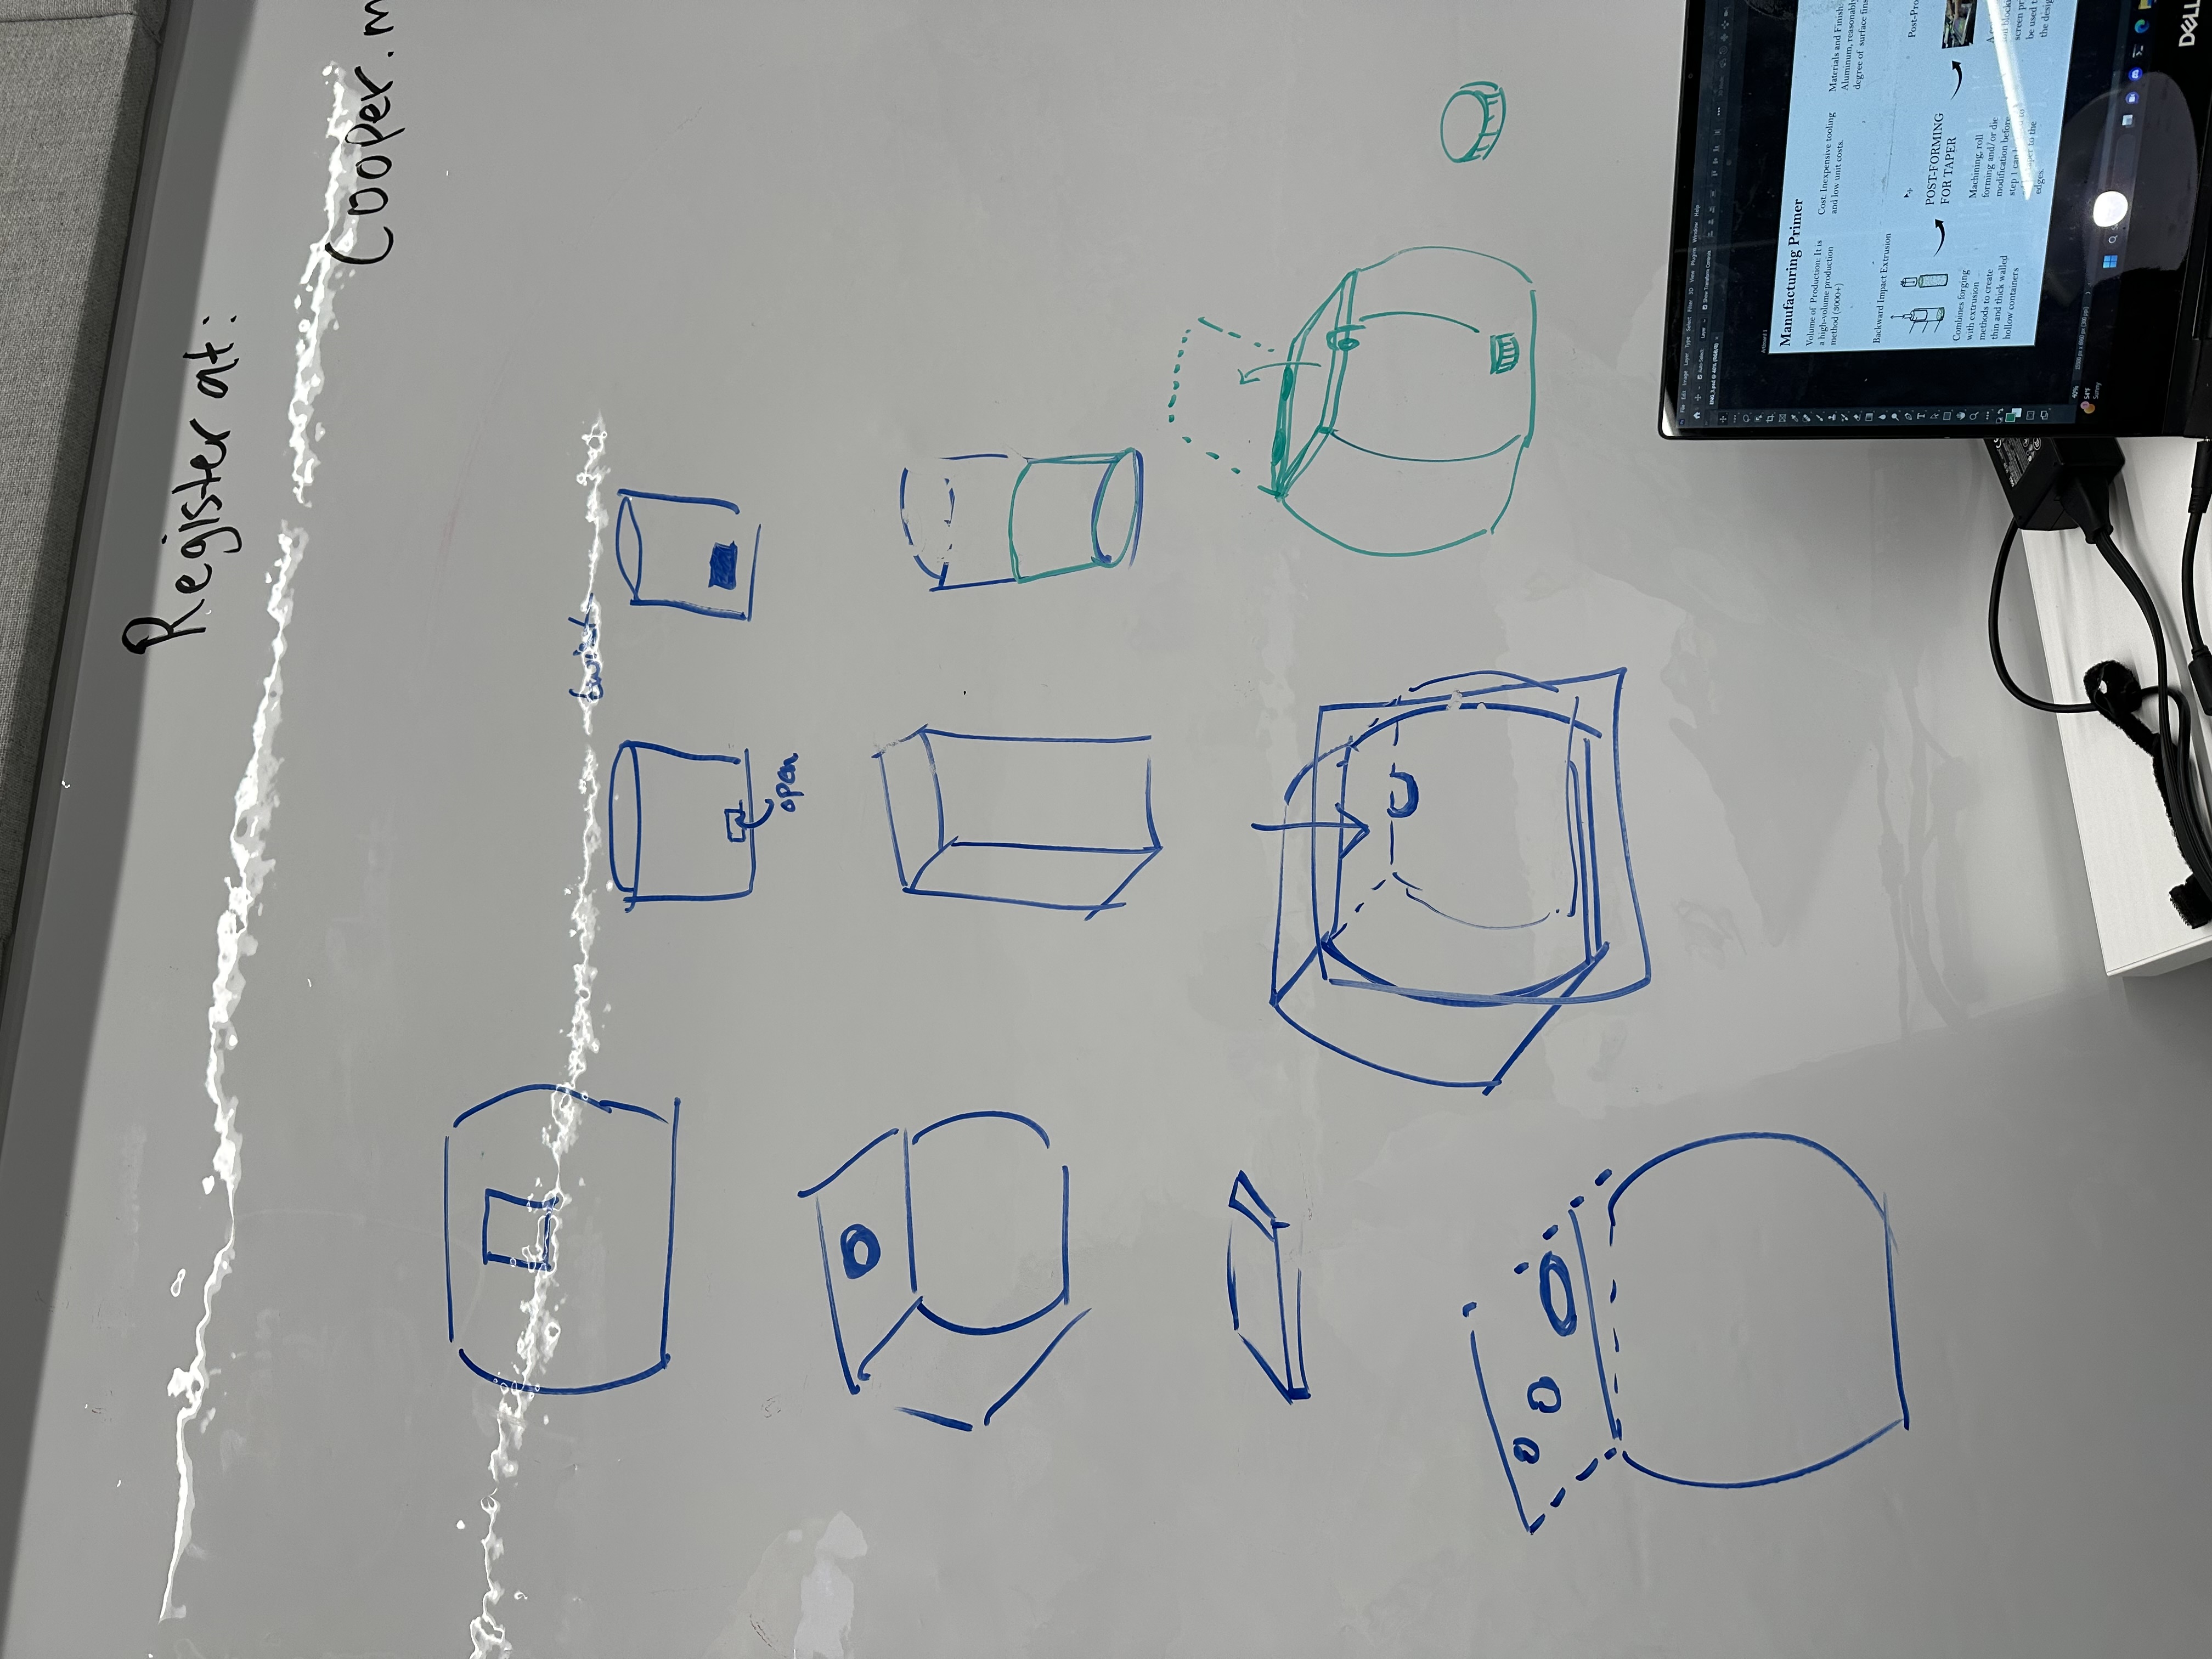 Register at:
Cooper.m
twist
open
File Edit Image Layer Type Select Filter 3D View Plugins Window Help
Auto-Select: Layer Show Transform Controls
Artboard 1
Manufacturing Primer
Volume of Production: It is
a high-volume production
method (3000+)
Cost: Inexpensive tooling
and low unit costs.
Materials and Finish:
Aluminum, reasonably
degree of surface fins
Backward Impact Extrusion
Combines forging
with extrusion
methods to create
thin and thick walled
hollow containers
POST-FORMING
FOR TAPER
Machining, roll
forming and/or die
modification before
step 1 can
to the
edges.
Post-Pro
screen pr
be used t
the desig
40%
54°F
Sunny
DELL